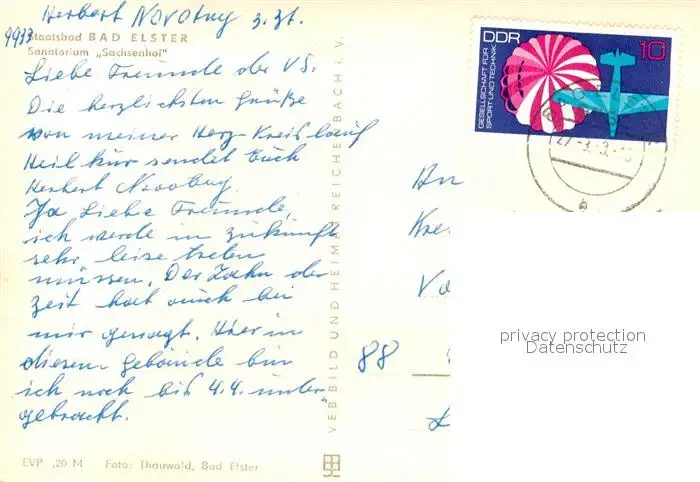 Herbert Novotny z. Zt.
9933 Staatsbad BAD ELSTER
Sanatorium „Sachsenhof"
Liebe Freunde der VS.
Die herzlichsten Grüße
von meiner Herz-Kreislauf
Heilkur sendet Euch
Herbert Novotny.
Ja Liebe Freunde,
ich werde in Zukunft
sehr leise treten
müssen. Der Zahn der
Zeit hat auch bei
mir genagt. Hier in
diesem Gebäude bin
ich noch bis 4.4. unter-
gebracht.
EVP ,20 M Foto: Thauwald, Bad Elster
VEB BILD UND HEIMAT REICHENBACH i. V.
DDR
10
GESELLSCHAFT FÜR
SPORT UND TECHNIK
An
88
privacy protection
Datenschutz